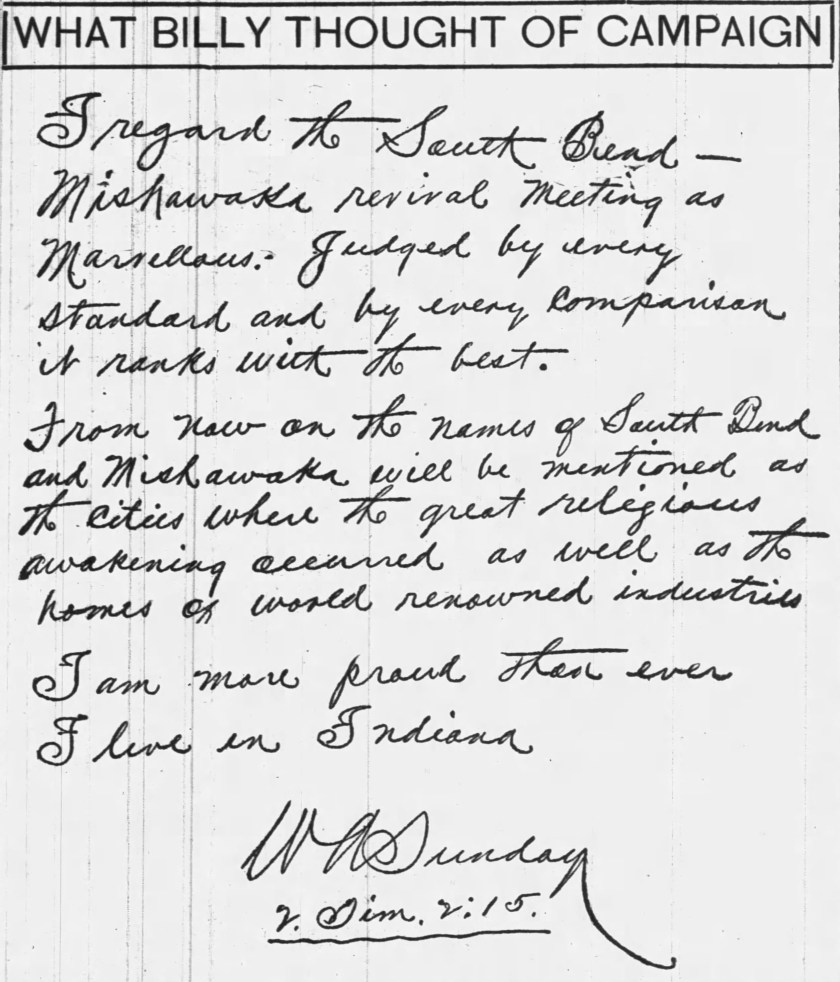 WHAT BILLY THOUGHT OF CAMPAIGN
I regard the South Bend —
Mishawaka revival meeting as
Marvellous.- Judged by every
standard and by every comparison
it ranks with the best.
From now on the names of South Bend
and Mishawaka will be mentioned as
the cities where the great religious
awakening occurred as well as the
homes of world renowned industries
I am more proud than ever
I live in Indiana
W A Sunday
2. Tim. 2:15.